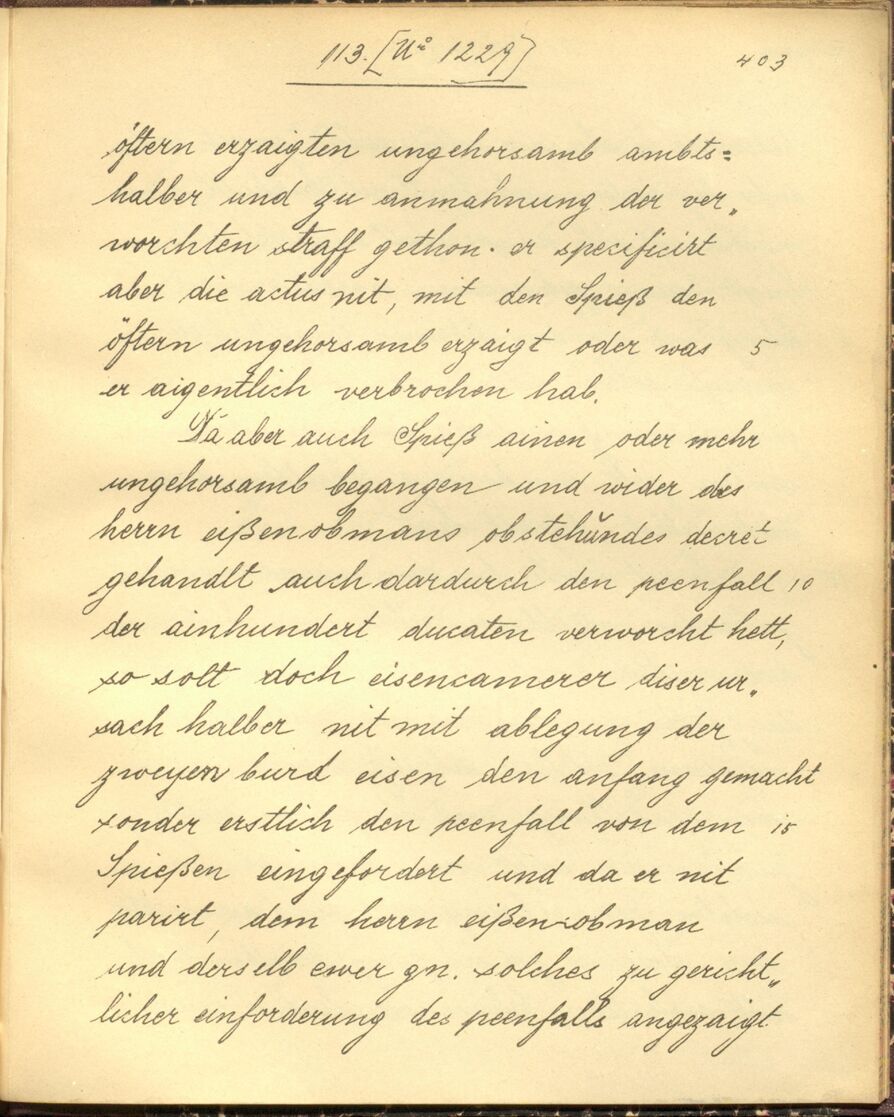 113. [No 1229]
403
öftern erzaigten ungehorsamb ambts=
halber und zu anmahnung der ver„
worchten straff gethon. er specificirt
aber die actus nit, mit den Spieß den
öftern ungehorsamb erzaigt oder was 5
er aigentlich verbrochen hab.
Da aber auch Spieß ainen oder mehr
ungehorsamb begangen und wider des
herrn eißenobmans obstehŭndes decret
gehandlt auch dardurch den peenfall 10
der ainhundert ducaten verworcht hett,
so solt doch eisencamerer diser ur„
sach halber nit mit ablegung der
zweyen burd eisen den anfang gemacht
sonder erstlich den peenfall von dem 15
Spießen eingefordert und da er nit
parirt, dem herrn eißen-obman
und derselb ewer gn. solches zu gericht„
licher einforderung des peenfalls angezaigt